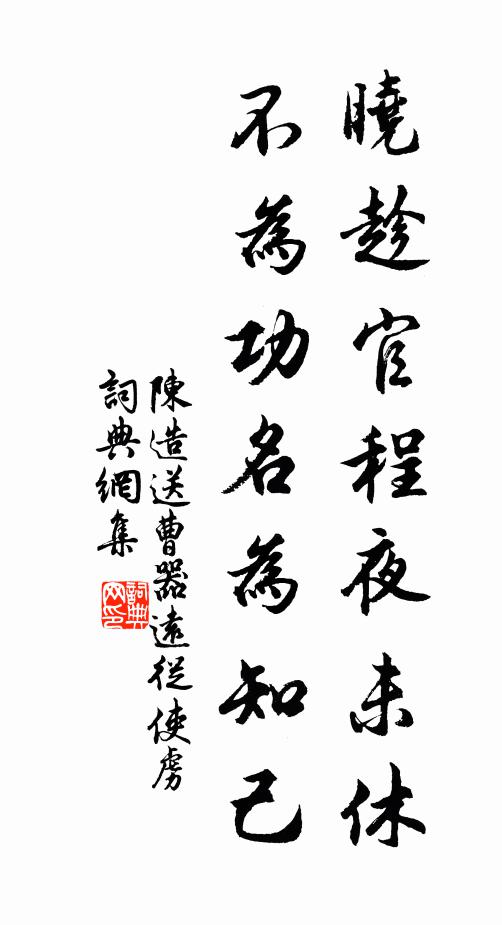 曉趁官程夜未休
不為功名為知己
陳造送曹器遠從使虜
詞典網集
詞典
网印